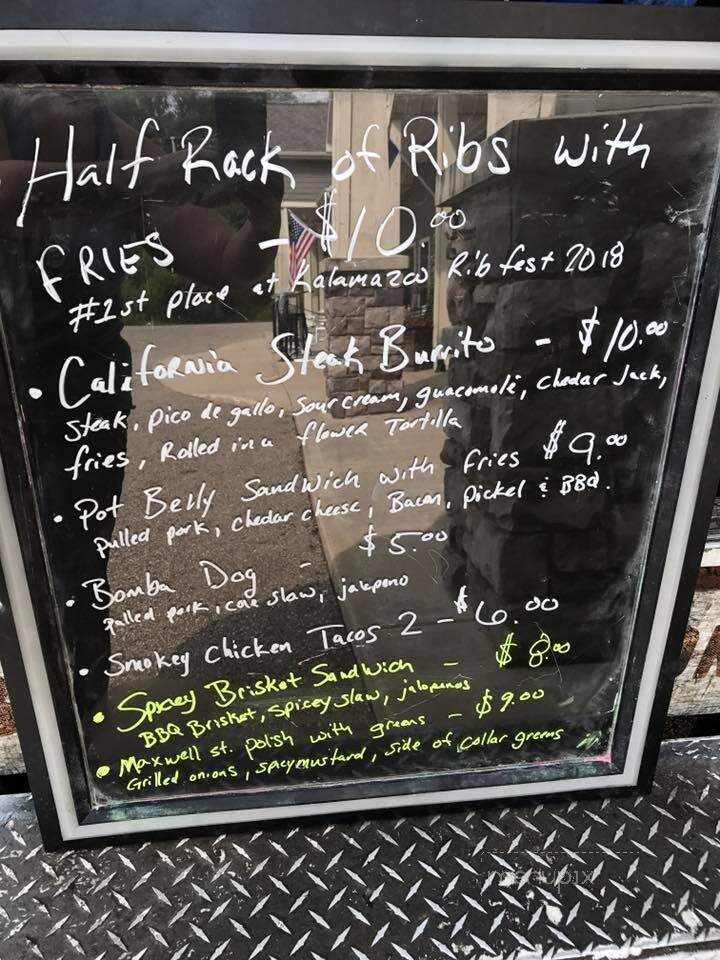 Half Rack of Ribs with
FRIES - $10.00
#1st place at Kalamazoo Rib fest 2018
• California Steak Burrito - $10.00
Steak, pico de gallo, Sour cream, guacomole, chedar Jack,
fries, Rolled in a flower Tortilla
• Pot Belly Sandwich with fries $9.00
pulled pork, chedar cheese, Bacon, pickel & BBQ.
• Bomba Dog - $5.00
pulled pork, cole slaw, jalapeno
• Smokey Chicken Tacos 2 - $6.00
• Spicey Brisket Sandwich - $8.00
BBQ Brisket, Spicey slaw, jalapenos
• Maxwell st. polish with greens - $9.00
Grilled onions, spicymustard, side of collar greens